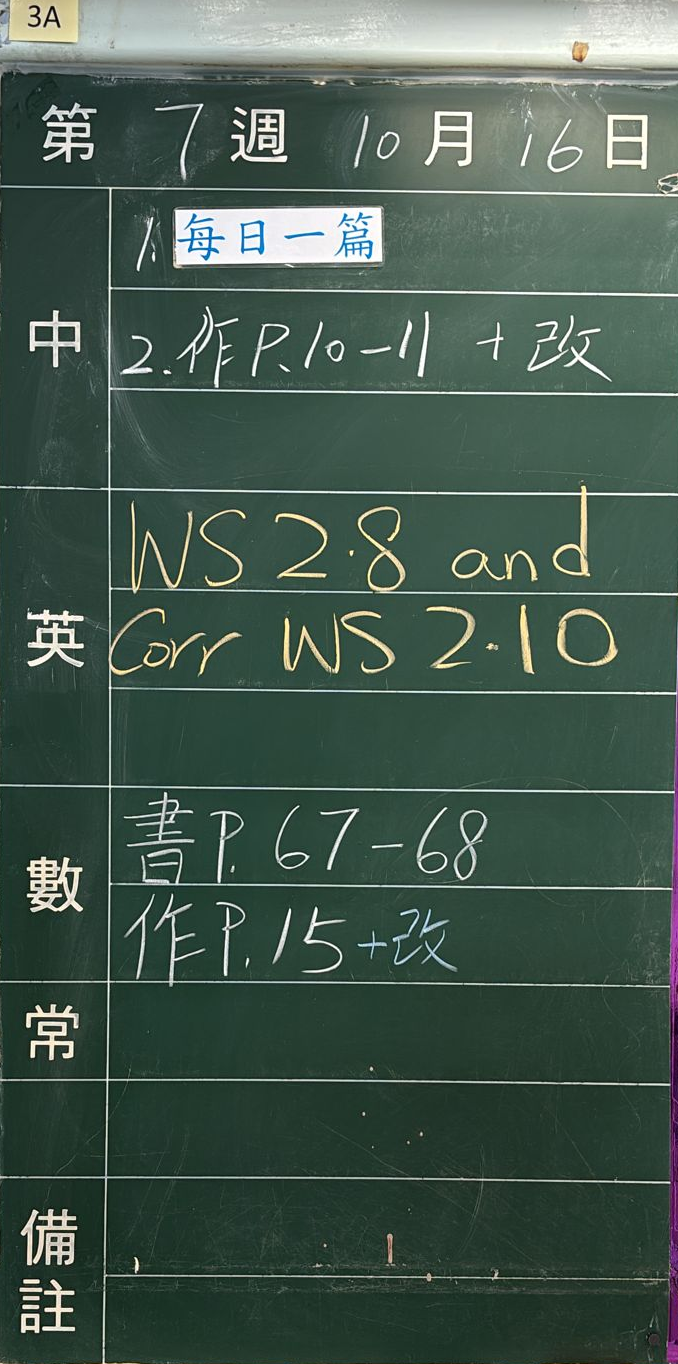 3A
第 7 週 10 月 16 日
中
1. 每日一篇
2. 作 P. 10-11 + 改
英
WS 2.8 and
Corr WS 2.10
數
書 P. 67-68
作 P. 15 + 改
常
備註